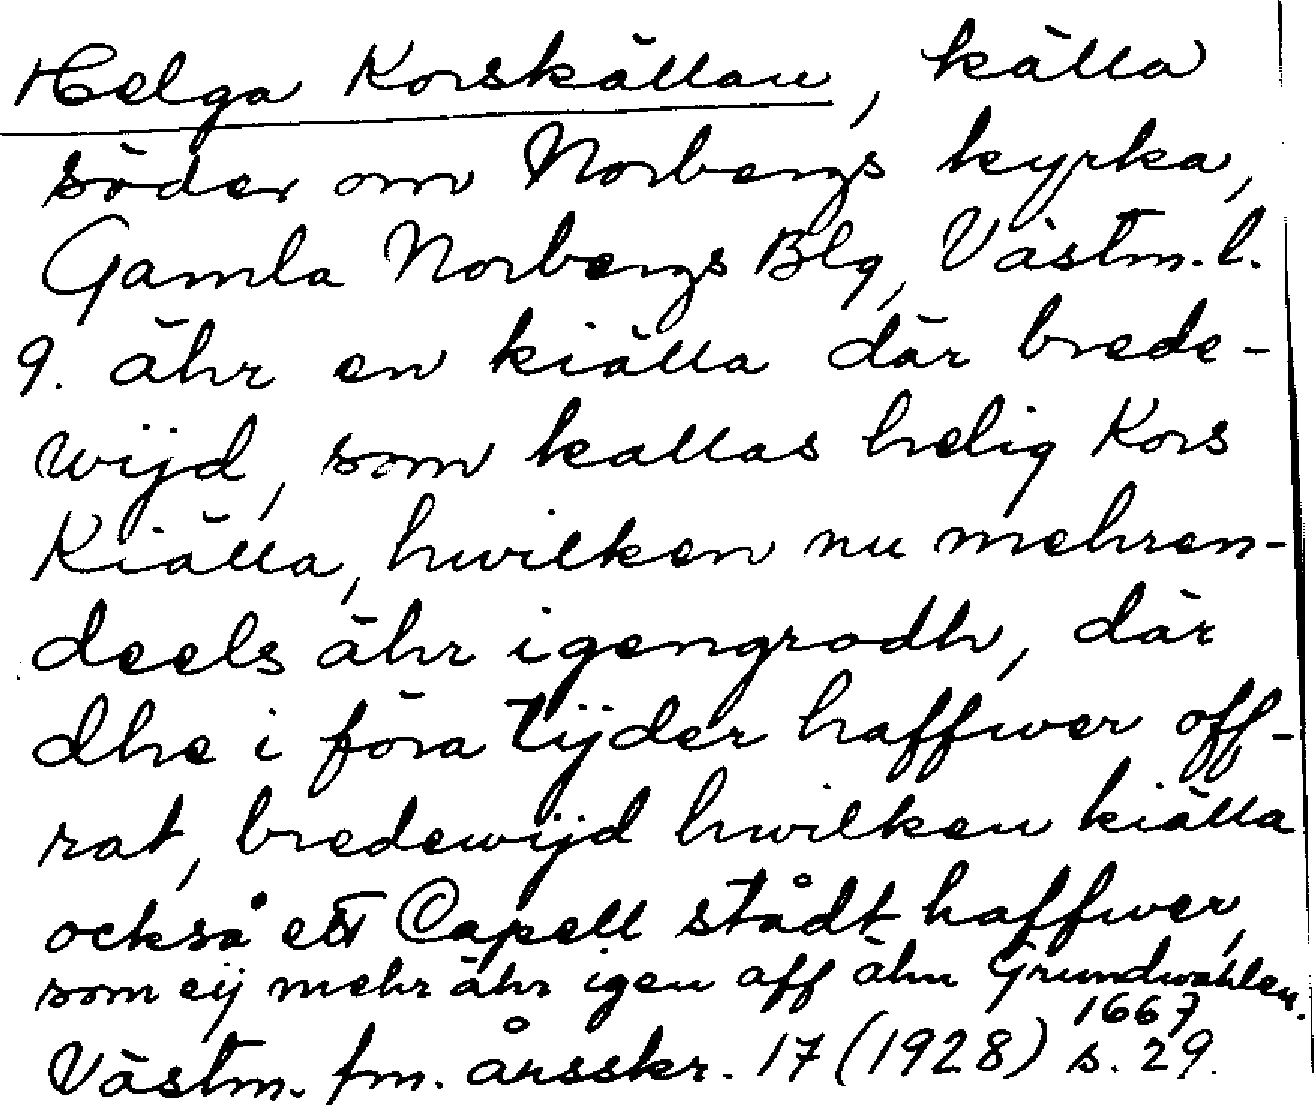 Helga Korskällan, källa
söder om Norbergs kyrka,
Gamla Norbergs Blg, Västm. l.
9. ähr en kiälla där brede-
wijd, som kallas helig Kors
Kiälla, hwilken nu mehren-
deels ähr igengrodh, där
dhe i föra tijder haffwer off-
rat, bredewijd hwilken kiälla
också ett Capell stådt haffwer,
som eij mehr ähr igen aff ähn Grundwahlen.
1667
Västm. fm. årsskr. 17 (1928) s. 29.